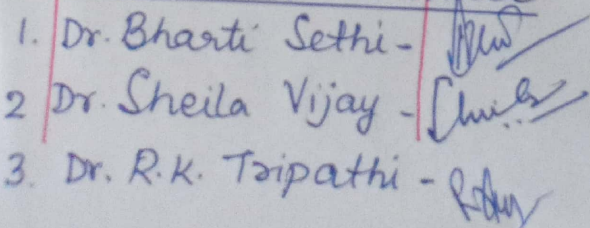 1. Dr. Bharti Sethi -
2 Dr. Sheila Vijay -
3. Dr. R.K. Tripathi -